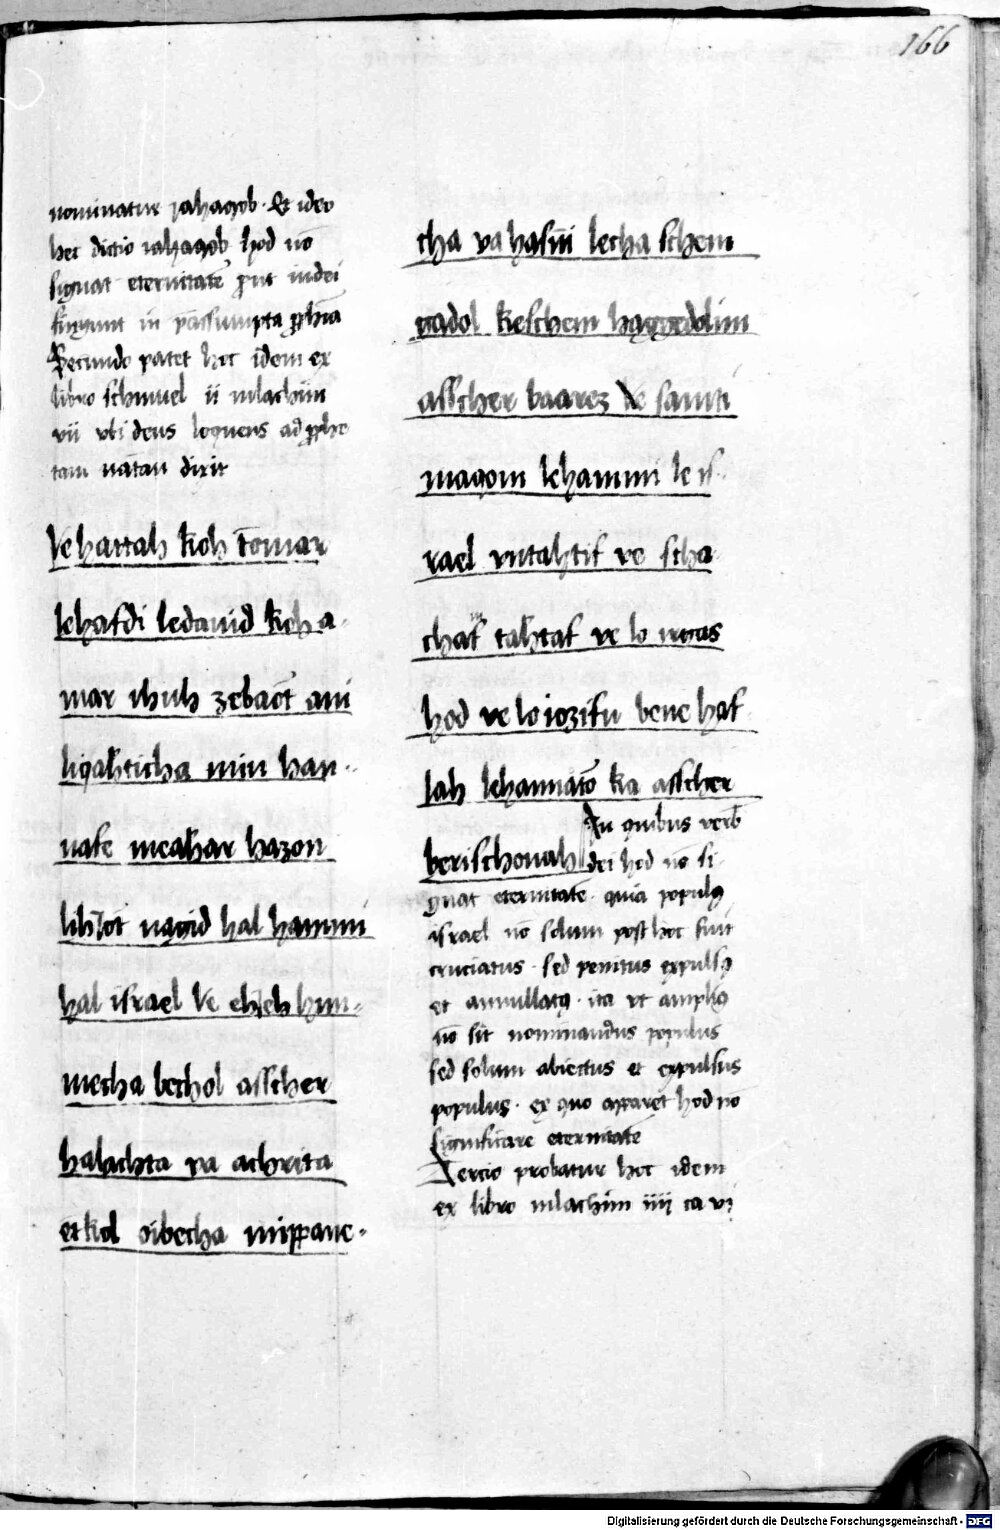 166
nominatur jahaqob. Et ideo
hec dictio iahaqob hod nō
signat eternitatē ꝓut iudei
fingunt in p̄assumpta ꝓphīa
Secundo patet hoc idem ex
libro schmuel ii mlachim
vii vbi deus loquens ad ꝓphe
tam nātan dixit
Ve hattah koh tōmar
lehafdi ledauid koh a-
mar ihuh zebaōt ani
liqahticha min han-
nafe meahar hazon
lihiōt nagid hal hammi
hal israel Ve ehieh him-
mecha bechol asscher
halachta va achrita
et kol oibecha mippane-
cha va hasiti lecha schem
gadol keschem haggedolim
asscher baarez Ve samti
maqom lehammi le is-
rael vntahtif ve scha-
chaf tahtaf ve lo irgas
hod ve lo iozifu bene haf-
lah lehannato ka asscher
In quibus verb
berischonah dei hod nō si-
gnat eternitate. quia populꝰ
israel nō solum post hoc fuit
cruciatus. sed penitus expulsꝰ
et annullatꝰ. ita vt ampliꝰ
nō sit nominandus populus
sed solum abiectus et expulsus
populus. ex quo apparet hod no
significare eternitatē
Tercio probatur hoc idem
ex libro mlachim iiij ca vi
Digitalisierung gefördert durch die Deutsche Forschungsgemeinschaft - DFG